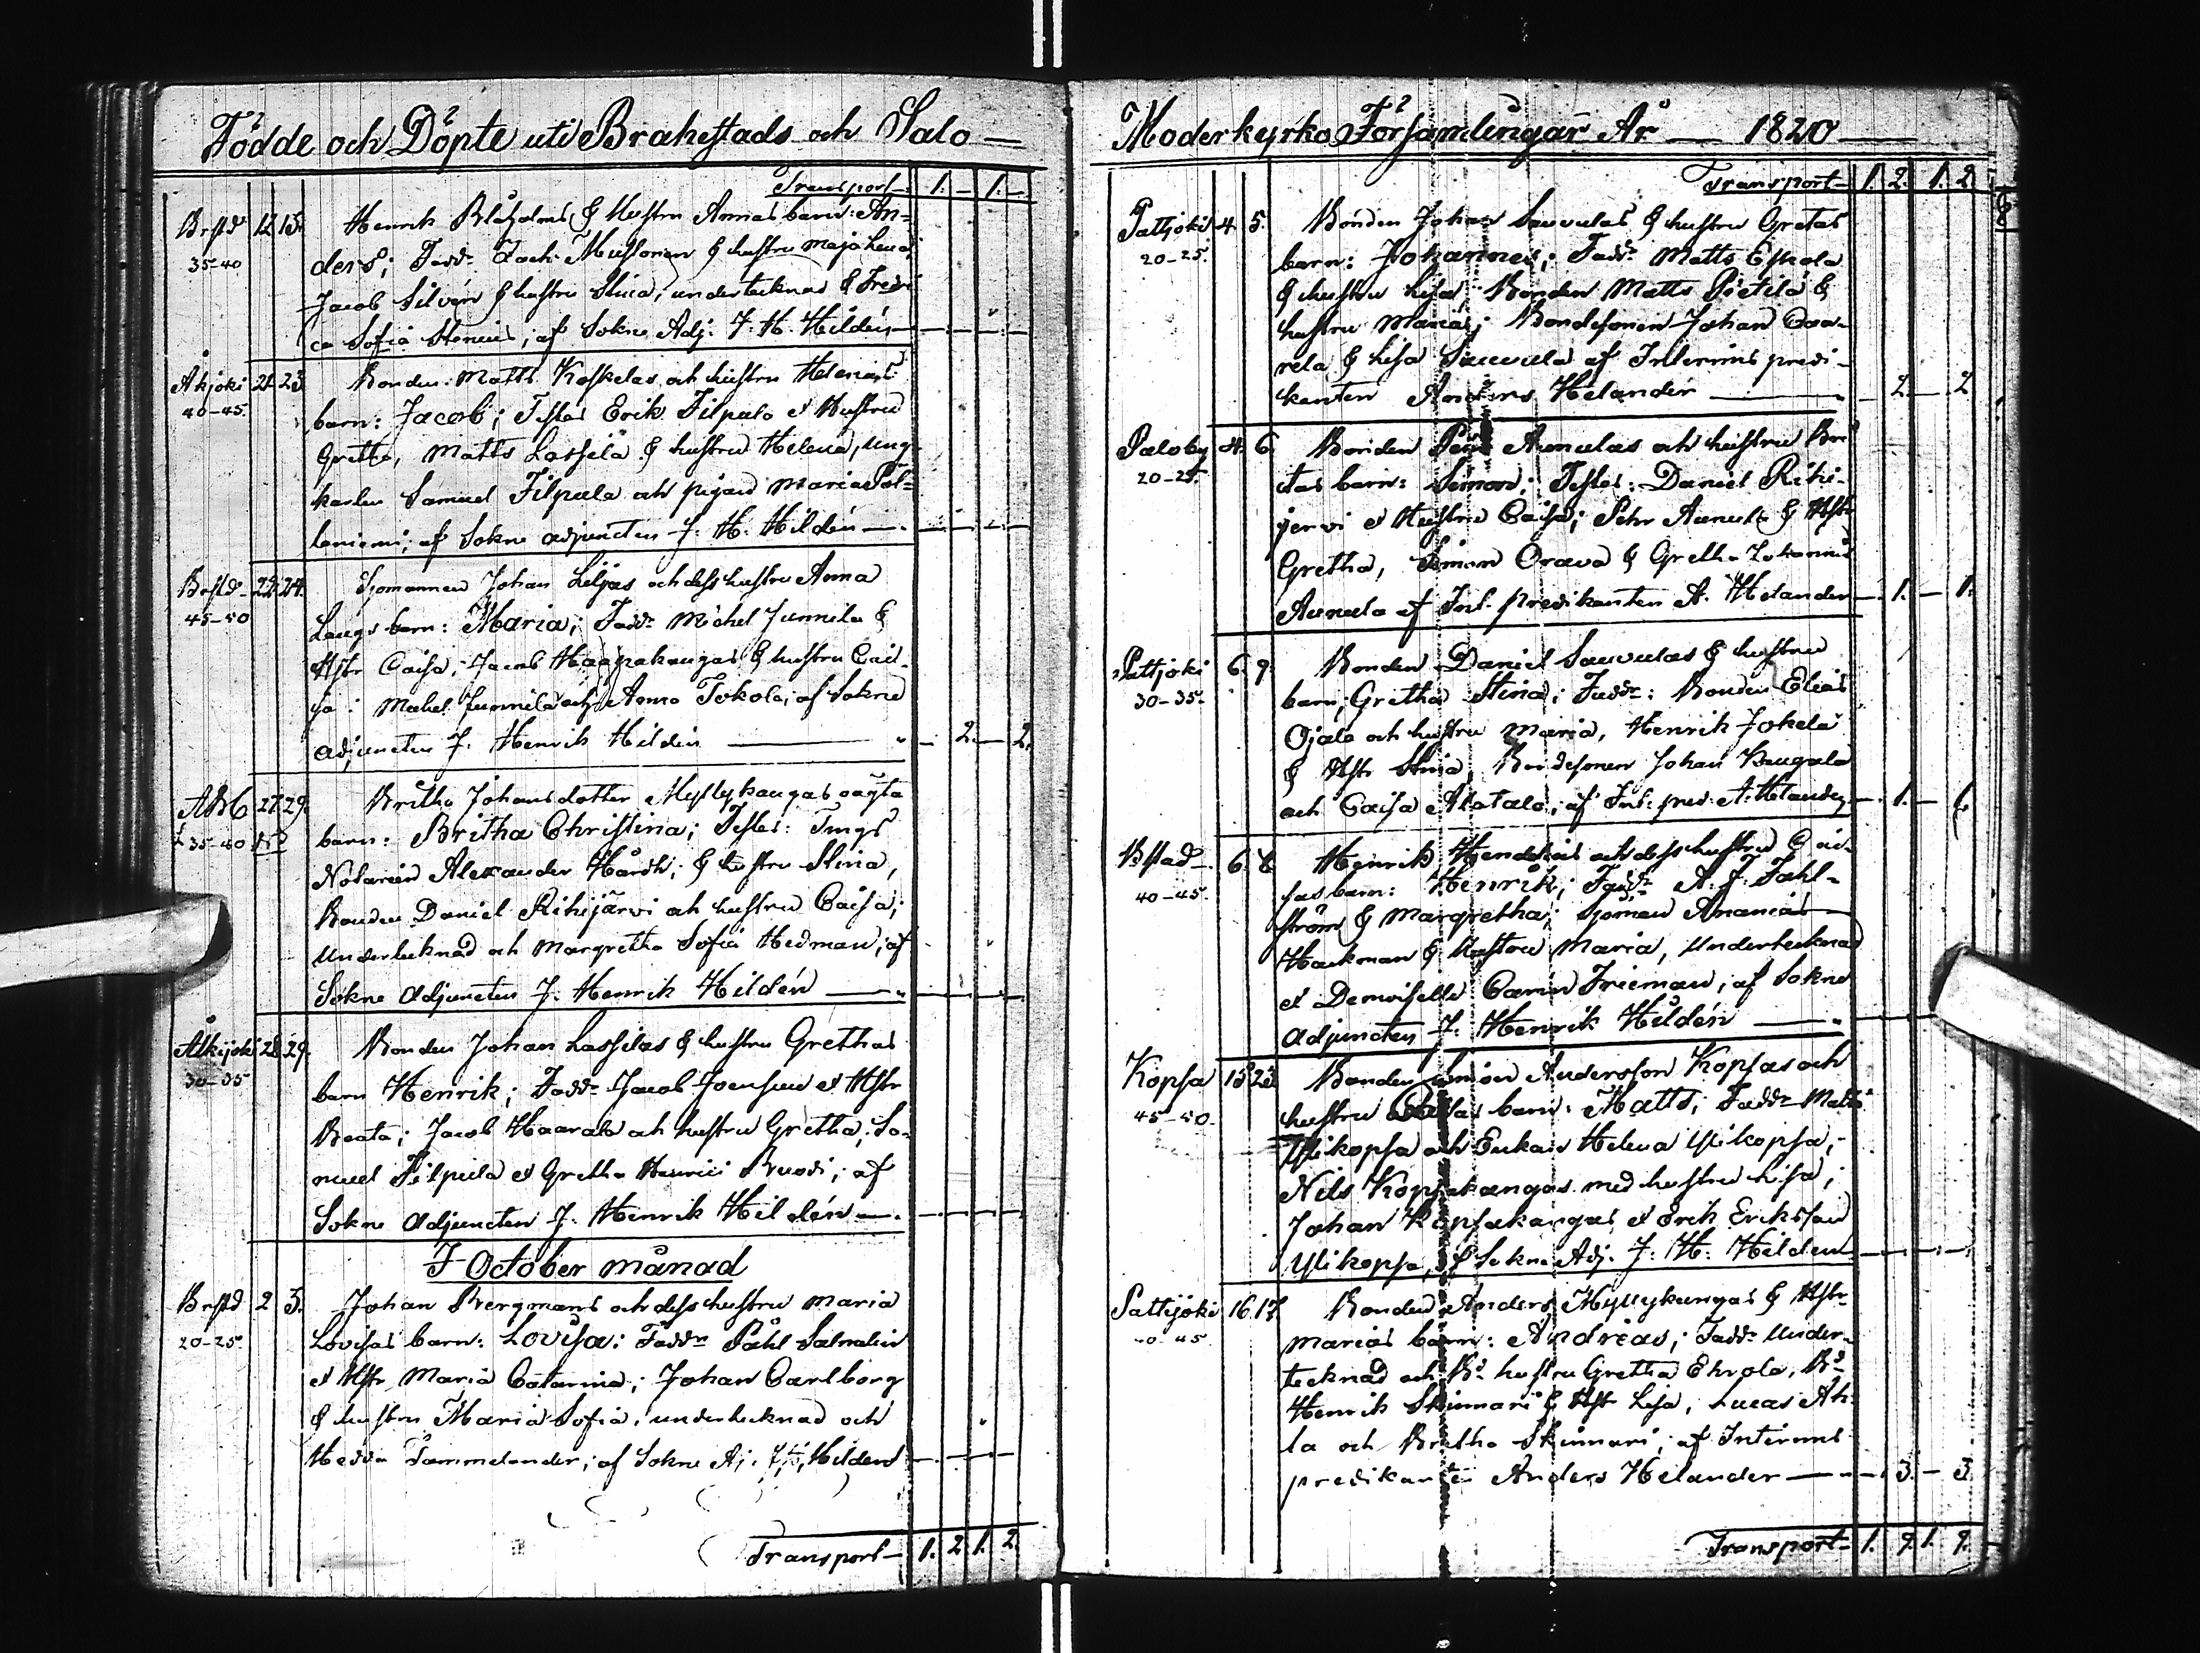 Födde och Döpte uti Brahestads och Salo —
Transport — 1. — 1. —
Brstd 12 13. Henrik Blåholms & Hustru Annas barn: An=
35-40 ders; Fadd: Zach: Mussonen & hustru Maja Lena;
Jacob Silvén & hustru Stina; undertecknad & Fredri
ca Sofia Stenius; af Sokne Adj. J. H. Hildén
Åkjoki 21 23. Bonden: Matts Koskelas och hustru Helenas
40-45. barn: Jacob; Testes Erik Filpula et Hustru
Gretha, Matts Lassila & hustru Helena, ung
karlen Samuel Filpula och pigan Maria Pöl=
laniemi; af Sokne adjuncten J. H. Hildén
Brstd 22 24. Sjömannen Johan Liljas och dess hustru Anna
45-50 Laugs barn: Maria; Fadd: Michel Junnila &
Hstr Caisa; Jacob Haapakangas & hustru Cai-
sa: Mickel Junnila och Anna Tokola; af Sokne
adjuncten J. Henrik Hildén — 2. — 2.
27 29. Britha Johansdotter Myllykangas oägta
35-40 barn: Britha Christina; Testes: Tings
Notarien Alexander Hårdh; & hustru Stina,
Bonden Daniel Rihijärvi och hustru Caisa;
Undertecknad och Margretha Sofia Hedman; af
Sokne Adjuncten J. Henrik Hildén
Ålkijoki 28 29. Bonden Johan Lassilas & hustru Grethas
30-35 barn Henrik; Fadd: Jacob Joensuu et Hstr
Beata; Jacob Haarala och hustru Gretha; Sa-
muel Filpula et Gretha Henrici Ruodi; af
Sokne Adjuncten J. Henrik Hildén
I October månad
Brstd 2 3. Johan Bergmans och dess hustru Maria
20-25. Lovisas barn: Lovisa: Fadd: Påhl Salmelin
et Hstr Maria Catarina; Johan Carlborg
& hustru Maria Sofia; undertecknad och
Hedda Tammelander; af Sokne Aj. J. H. Hildén
Transport — 1. 2. 1. 2.
Moderkyrko Församlingar År — 1820 —
Transport — 1. 2. 1. 2.
Pattjoki 4. 5. Bonden Johan Sauvulas & hustru Gretas
20-25. barn: Johannes; Fadd: Matts Eskola
& hustru Lisa; Bonden Matts Pietilä &
hustru Maria; Bondesonen Johan Ova-
rela & Lisa Sauvula af Interims predi-
kanten Anders Helander — 2. — 2
Paloby 4. 6. Bonden Aunulas och hustru Bri
20-25. tas barn: Simon; Testes: Daniel Rihi-
jervi et Hustru Caisa; Aunula & Hstr
Gretha, Simon Orava & Gretha Johannis
Aunula af Int. predikanten A. Helander — 1. — 1.
Pattjoki 6. 9. Bonden Daniel Sauvulas & hustru
30-35. barn, Gretha Stina; Fadd: Bonden Elias
Ojala och hustru Maria, Henrik Jokela
& Hstr Stina, Bondesonen Johan Kaugala
och Caisa Alatalo; af Int: pred: A: Helander — 1. —
Bstad 6. 8. Henrik och dess hustru Cai-
40-45. sas barn: Henrik; Fadd: A. J. Fahl-
ström & Margretha; Sjöman Ananias
Hackman & Hustru Maria, Undertecknad
et Demoiselle Carin Frieman; af Sokne
Adjuncten J. Henrik Hildén
Kopsa 15 23. Bonden Simon Andersson Kopsas och
45-50. hustru barn: Matts; Fadd: Matts
Ylikopsa och Enkan Helena Ylikopsa;
Nils Kopsakangas med hustru Lisa;
Johan Kopsakangas et Erik Eriksson
Ylikopsa, af Sokne Adj. J: H: Hilden
Pattijoki 16 17. Bonden Anders Myllykangas & Hstr
40-45 Marias barn: Andreas; Fadd: Under-
tecknad och Bd: hustru Gretha Ehrola, Bd:
Henrik Skinnari & Hstr Lisa, Lucas Ah-
la och Britha Skinnari; af Interims
predikanten Anders Helander — 3. — 3.
Transport — 1. 9. 1. 9.